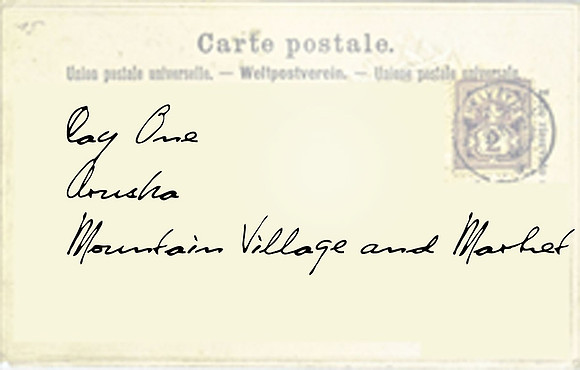 Carte postale.
Union postale universelle. — Weltpostverein. — Unione postale universale.
Day One
Arusha
Mountain Village and Market
2